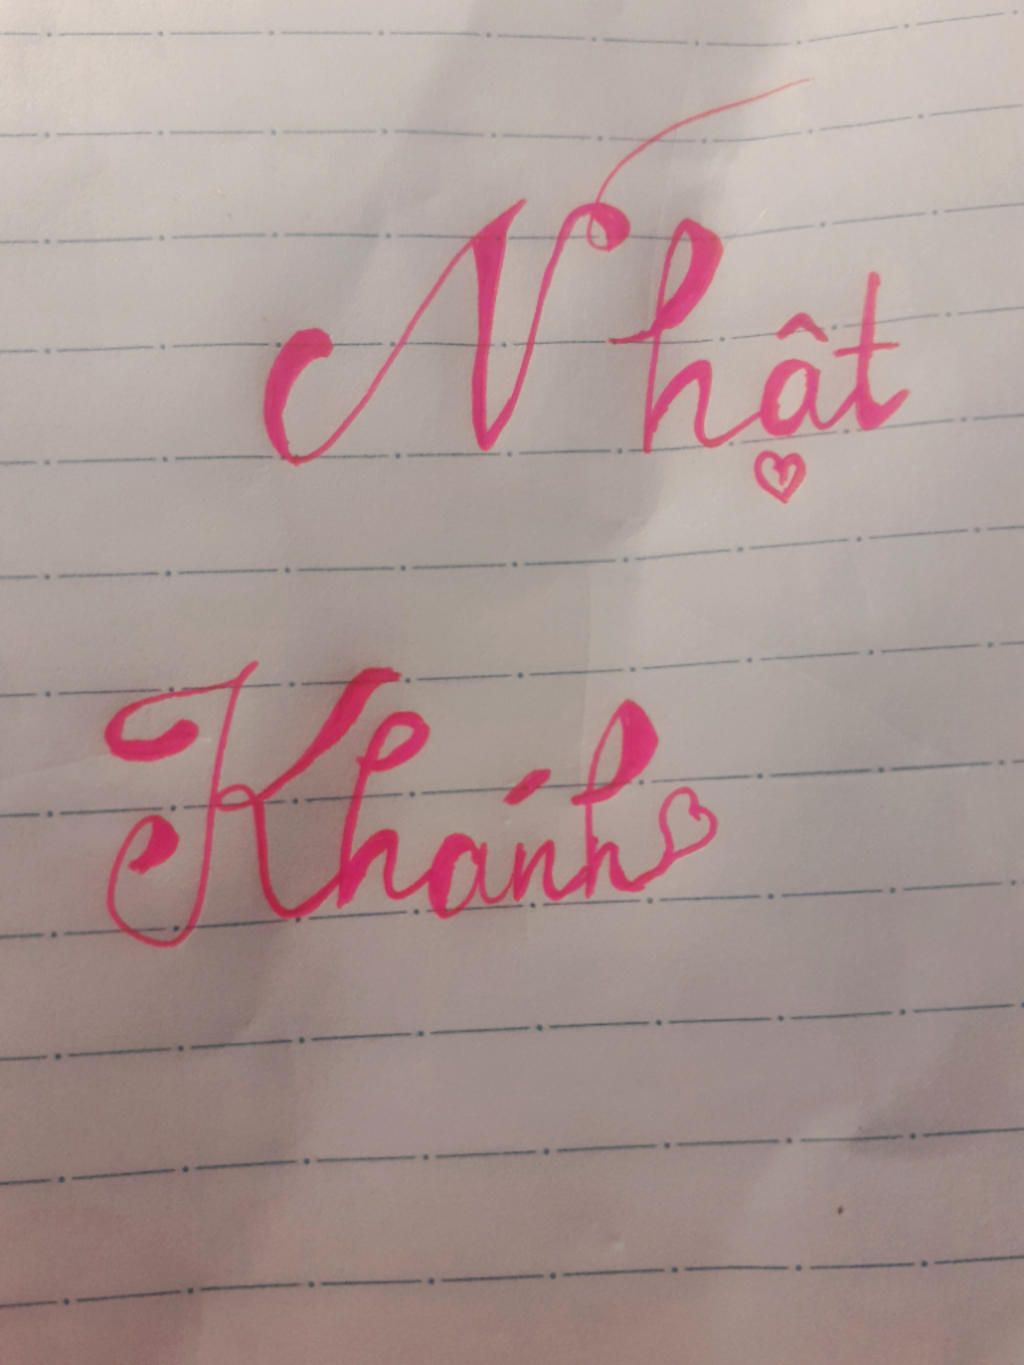 Nhật
Khánh